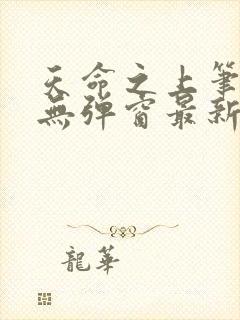 天命之上筆
無彈窗最新
龍華